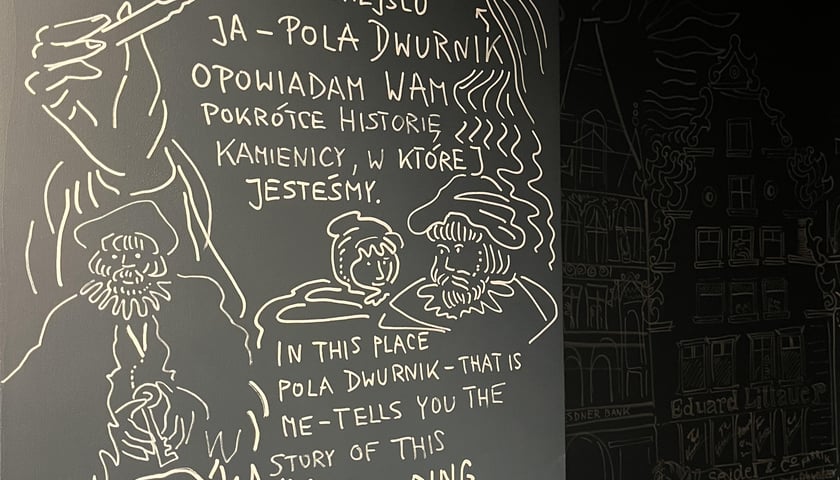 JA – POLA DWURNIK
OPOWIADAM WAM
POKRÓTCE HISTORIĘ
KAMIENICY, W KTÓREJ
JESTEŚMY.
IN THIS PLACE
POLA DWURNIK – THAT IS
ME – TELLS YOU THE
STORY OF THIS
SDNER BANK
Eduard Littauer
Seidel & Co